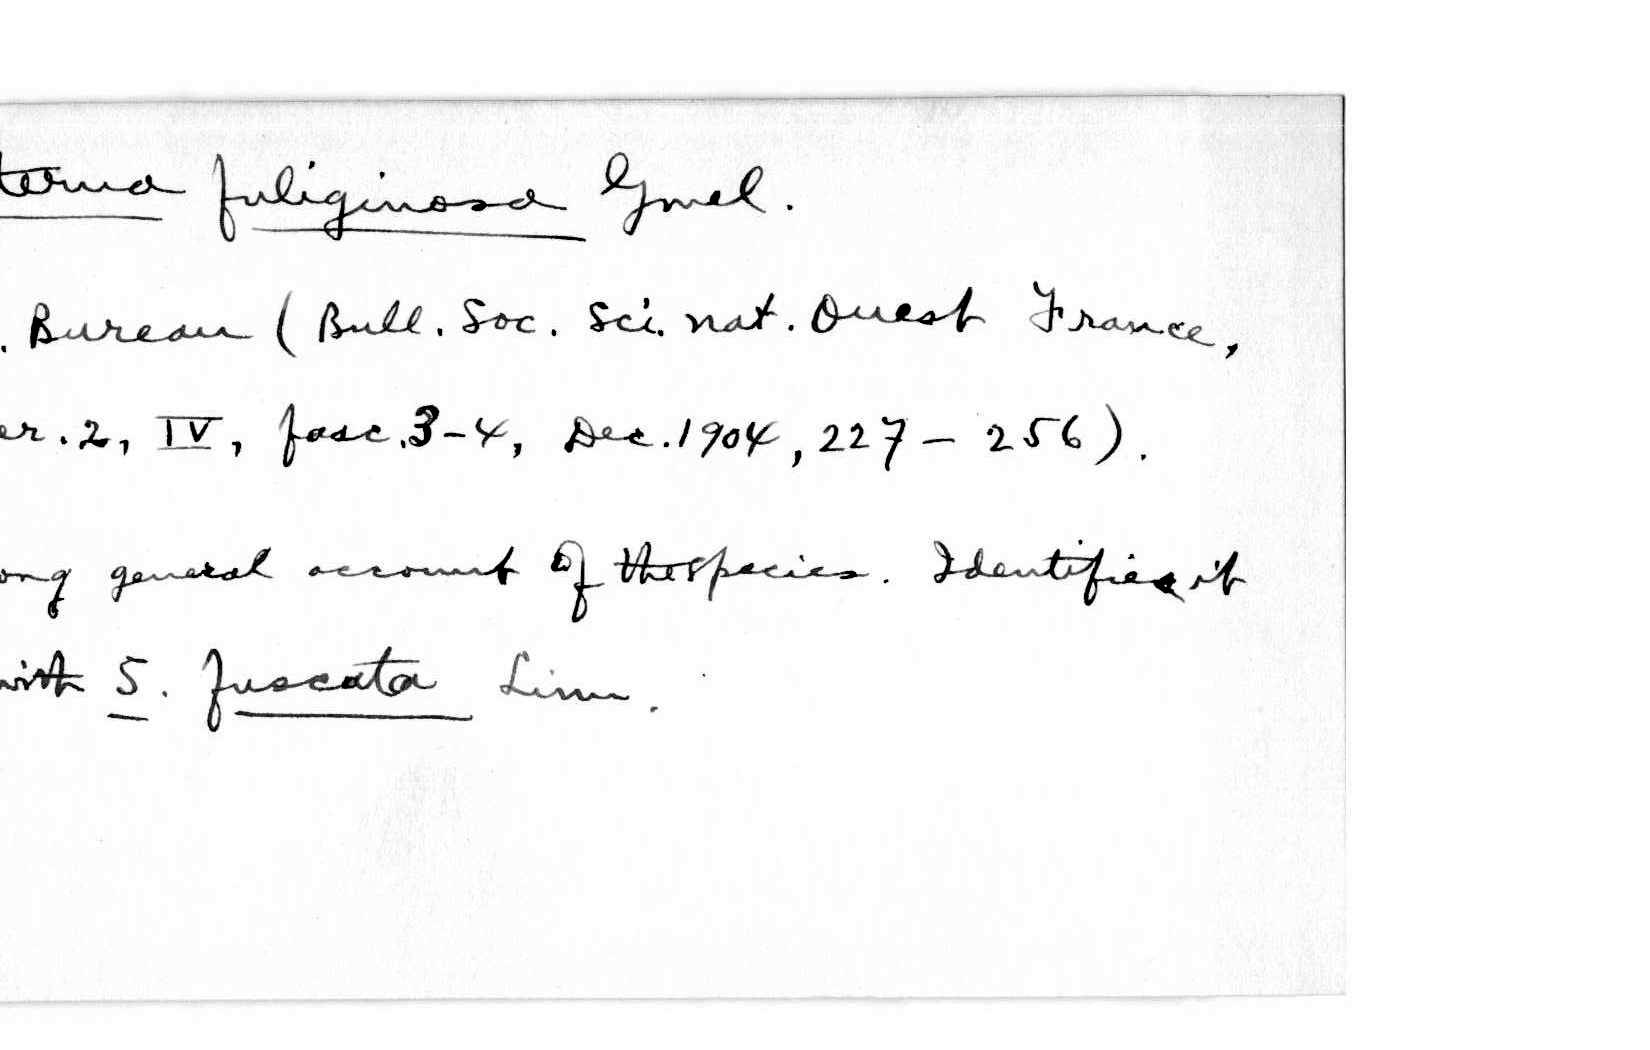 terna fuliginosa Gmel.
. Bureau (Bull. Soc. Sci. nat. Ouest France,
er. 2, IV, fasc. 3-4, Dec. 1904, 227 - 256).
ong general account of the species. Identifies it
with S. fuscata Linn.